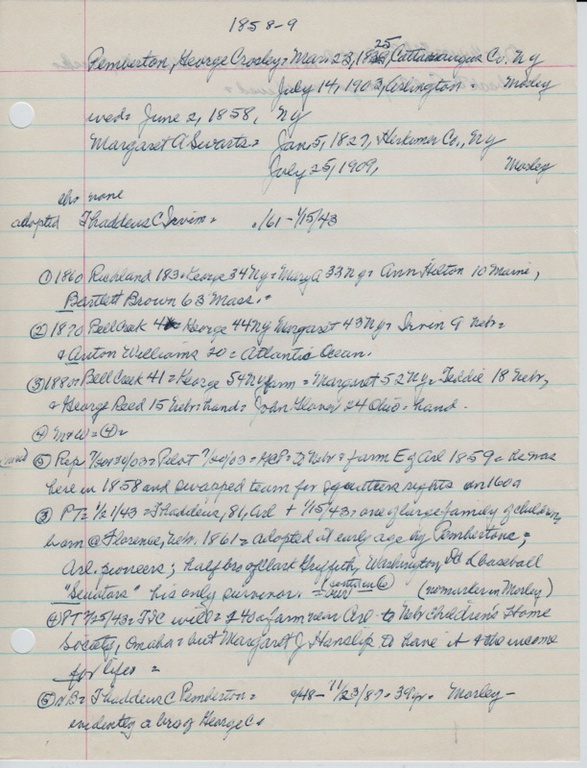 1858-9
Pemberton, George Crosley = Mar. 23, 1825, Cattaraugus Co. Ny
July 14, 1903, Arlington = Mosley
wed = June 2, 1858, Ny
Margaret A Swarts = Jan 5, 1827, Herkimer Co., Ny
July 25, 1909, Mosley
chr none
adopted Thaddeus C Irvin = /61 - 1/15/43
① 1860 Richland 183 = George 34 Ny = Mary A 33 Ny = Ann Hilton 10 Maine,
Bartlett Brown 63 Mass. =
② 1870 Bell Creek = George 44 Ny Margaret 43 Ny = Irvin 9 Nebr =
& Anton Williams 20 = Atlantic Ocean.
③ 1880 = Bell Creek 41 = George 54 Ny farm = Margaret 52 Ny = Teddie 18 Nebr,
& George Reed 15 Nebr = hand = John Glover 24 Ohio = hand.
④ M & W = ④ =
⑤ Rep = Pilot 7/20/03 = Nebr = farm E of Arl 1859 = he was
here in 1858 and swapped team for squatters rights on 160a
③ PT = 1/21/43 = Thaddeus, 81, Arl + 1/15/43 = one of large family of children,
born @ Florence, Nebr. 1861 = adopted at early age by Pembertons;
Arl. pioneers; half bro of Clark Griffith, Washington, DC baseball
"Senators" his only survivor. = (no marker in Mosley)
④ PT 7/25/43 = TSC will = 240a farm near Arl to Nebr Children's Home
Society, Omaha = but Margaret J Hanslip to have it & the income
for life =
⑤ NB = Thaddeus C Pemberton = /48 - 11/23/87 = 39 yr. Mosley -
evidently a bro of George C.